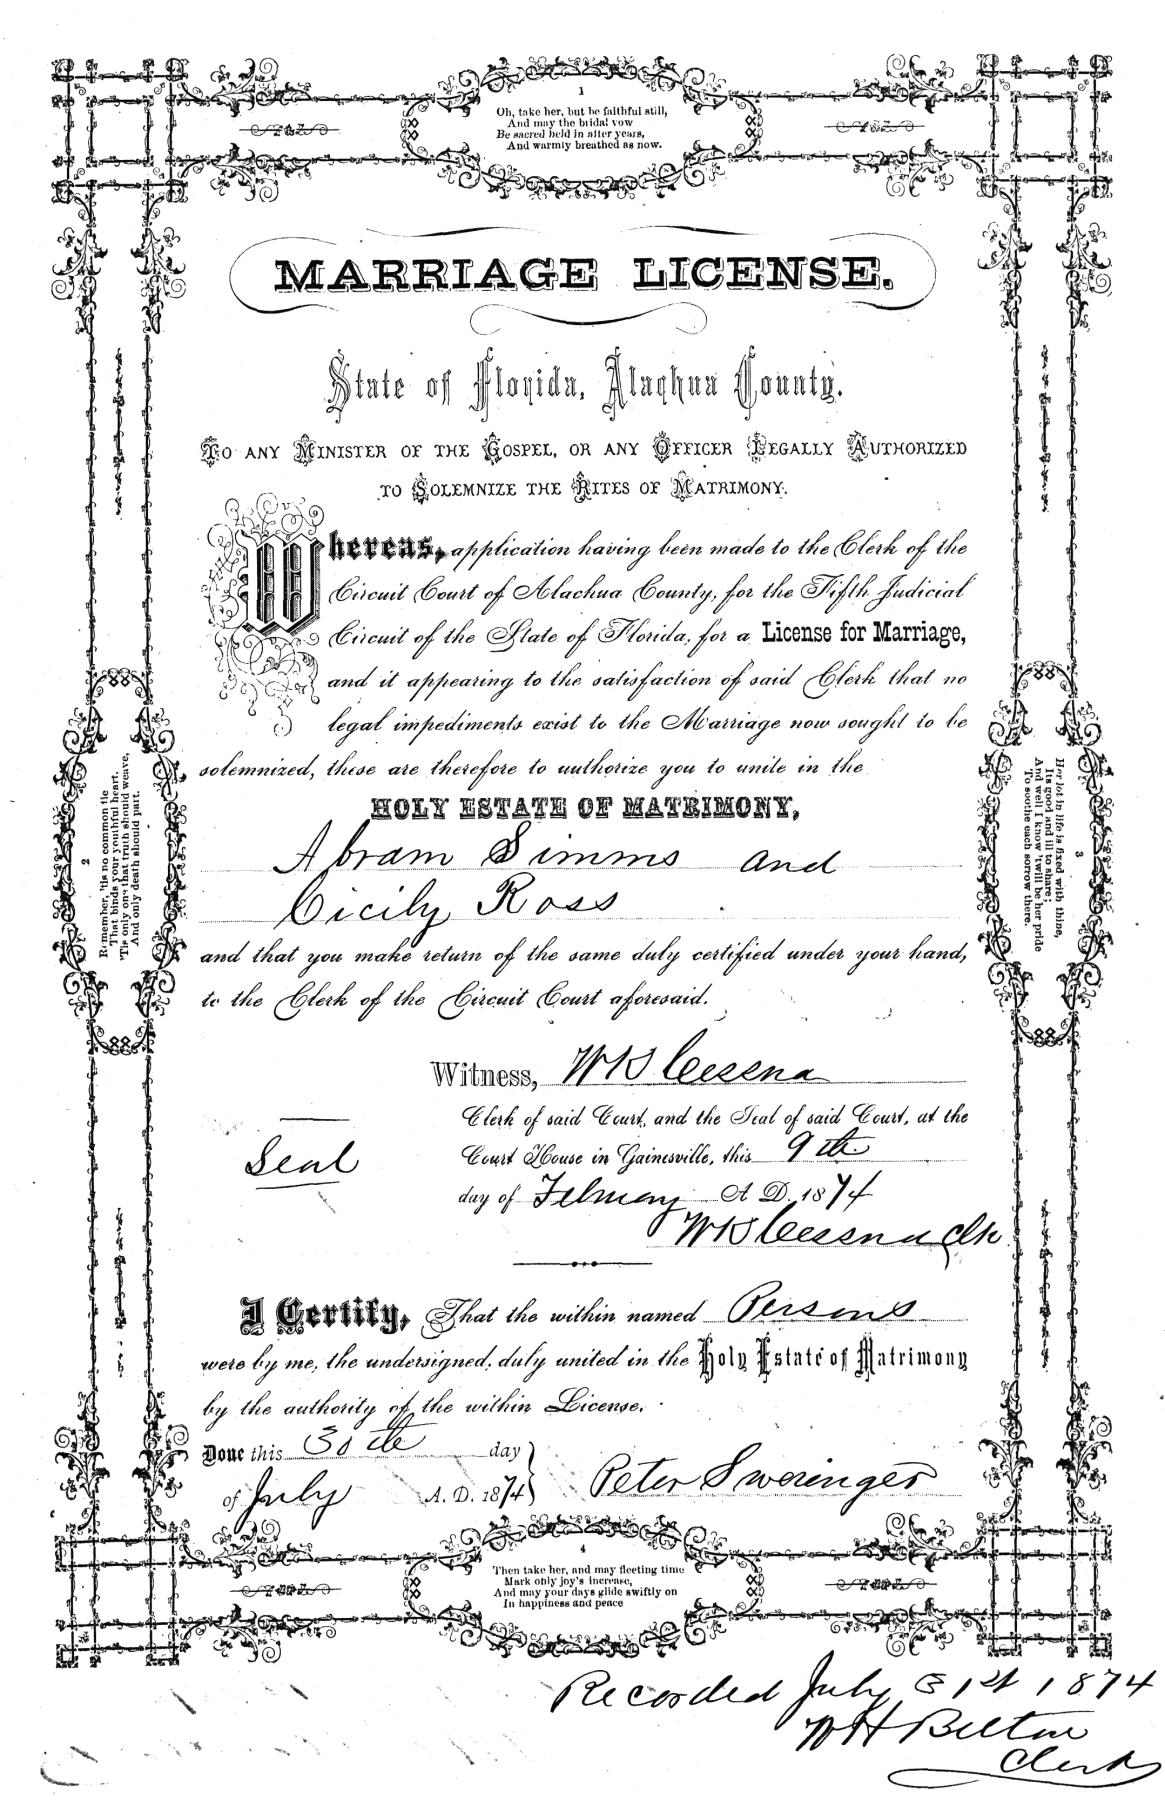 1
Oh, take her, but be faithful still,
And may the bidal vow
Be sacred held in after years,
And warmly breathed as now.
MARRIAGE LICENSE.
State of Florida, Alachua County.
TO ANY MINISTER OF THE GOSPEL, OR ANY OFFICER LEGALLY AUTHORIZED
TO SOLEMNIZE THE RITES OF MATRIMONY.
Whereas, application having been made to the Clerk of the
Circuit Court of Alachua County, for the Fifth Judicial
Circuit of the State of Florida, for a License for Marriage,
and it appearing to the satisfaction of said Clerk that no
legal impediments exist to the Marriage now sought to be
solemnized, these are therefore to authorize you to unite in the
HOLY ESTATE OF MATRIMONY,
Abram Simms and
Cicily Ross
and that you make return of the same duly certified under your hand,
to the Clerk of the Circuit Court aforesaid.
Witness, WK Cessna
Clerk of said Court, and the Seal of said Court, at the
Court House in Gainesville, this 9th
day of February A D. 1874
WK Cessna Clk
Seal
I Certify, That the within named Persons
were by me, the undersigned, duly united in the Holy Estate of Matrimony
by the authority of the within License.
Done this 30th day
of July A. D. 1874
Peter Sweringer
2
Remember, 'tis no common tie
That binds your youthful heart.
'Tis only one that truth should weave,
And only death should part.
3
Her lot in life is fixed with thine,
Its good and ill to share;
And well I know 'twill be her pride
To soothe each sorrow there.
4
Then take her, and may fleeting time
Mark only joy's increase,
And may your days glide swiftly on
In happiness and peace
Recorded July 31st 1874
WH Belton
Clerk